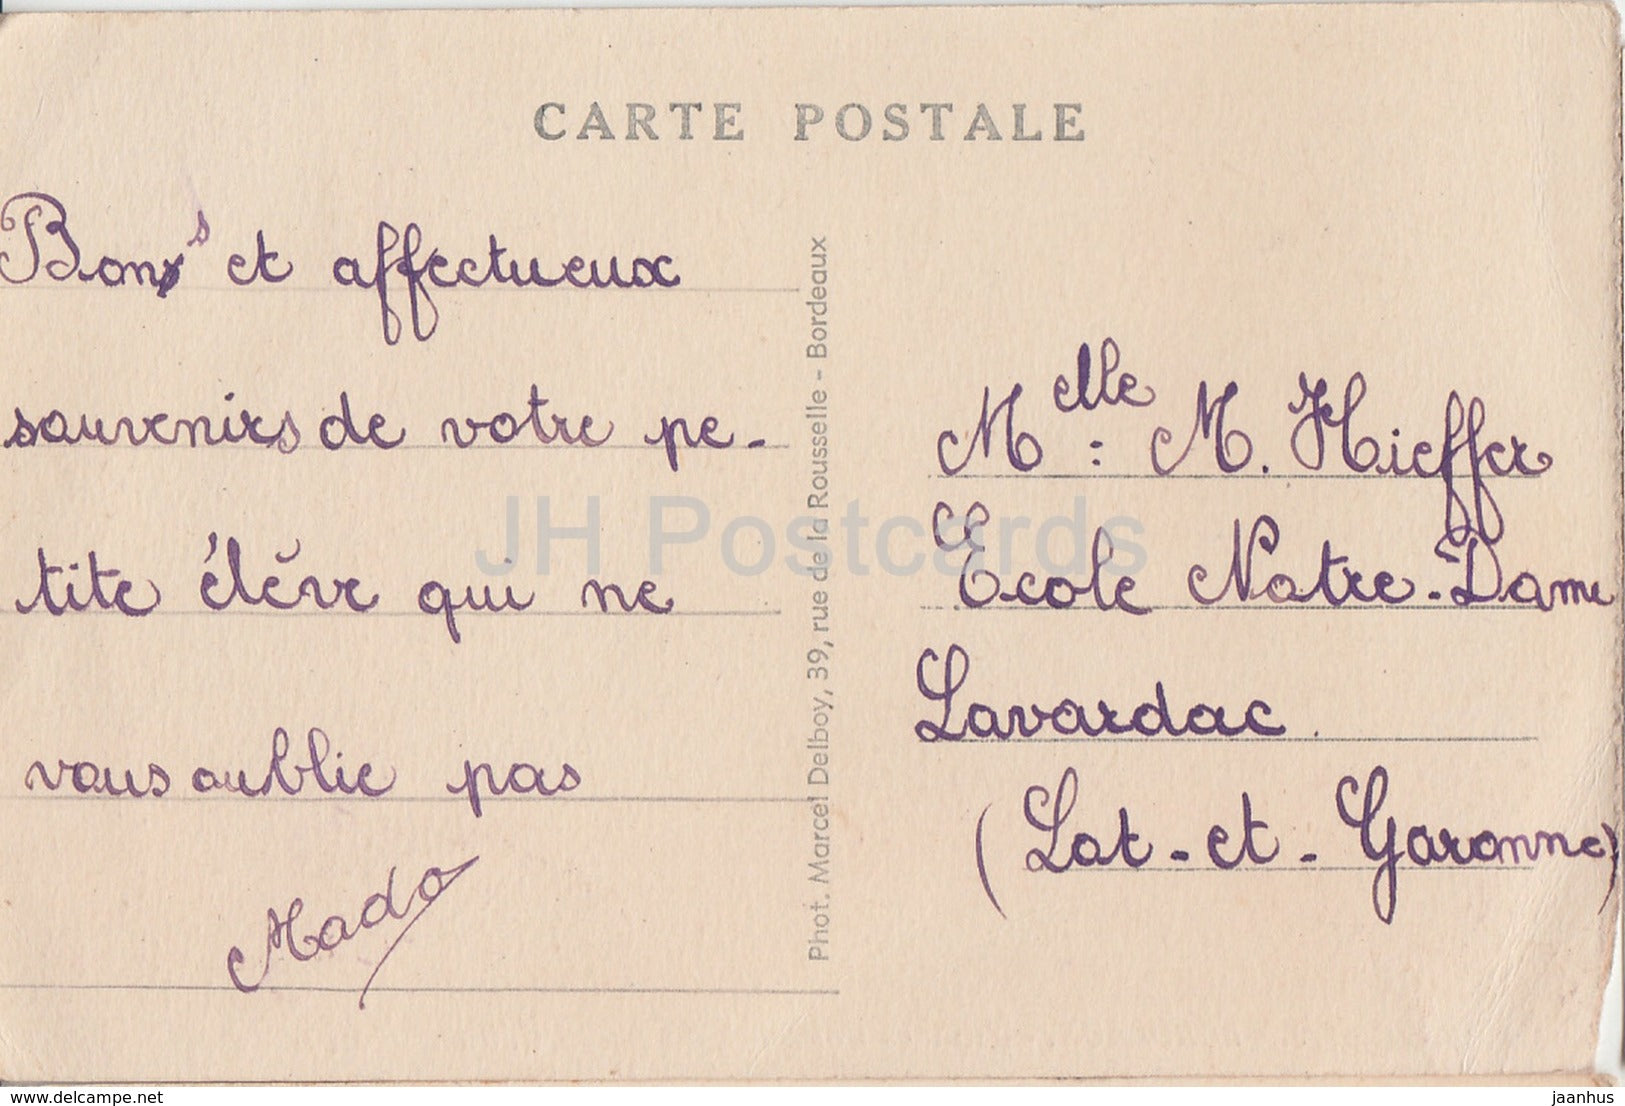 CARTE POSTALE
Bons et affectueux
souvenirs de votre pe-
tite élève qui ne
vous oublie pas
Mado
Phot. Marcel Delboy, 39, rue de la Rousselle - Bordeaux
Melle: M. Hieffer
Ecole Notre-Dame
Lavardac.
(Lot-et-Garonne)
JH Postcards
www.delcampe.net
jaanhus